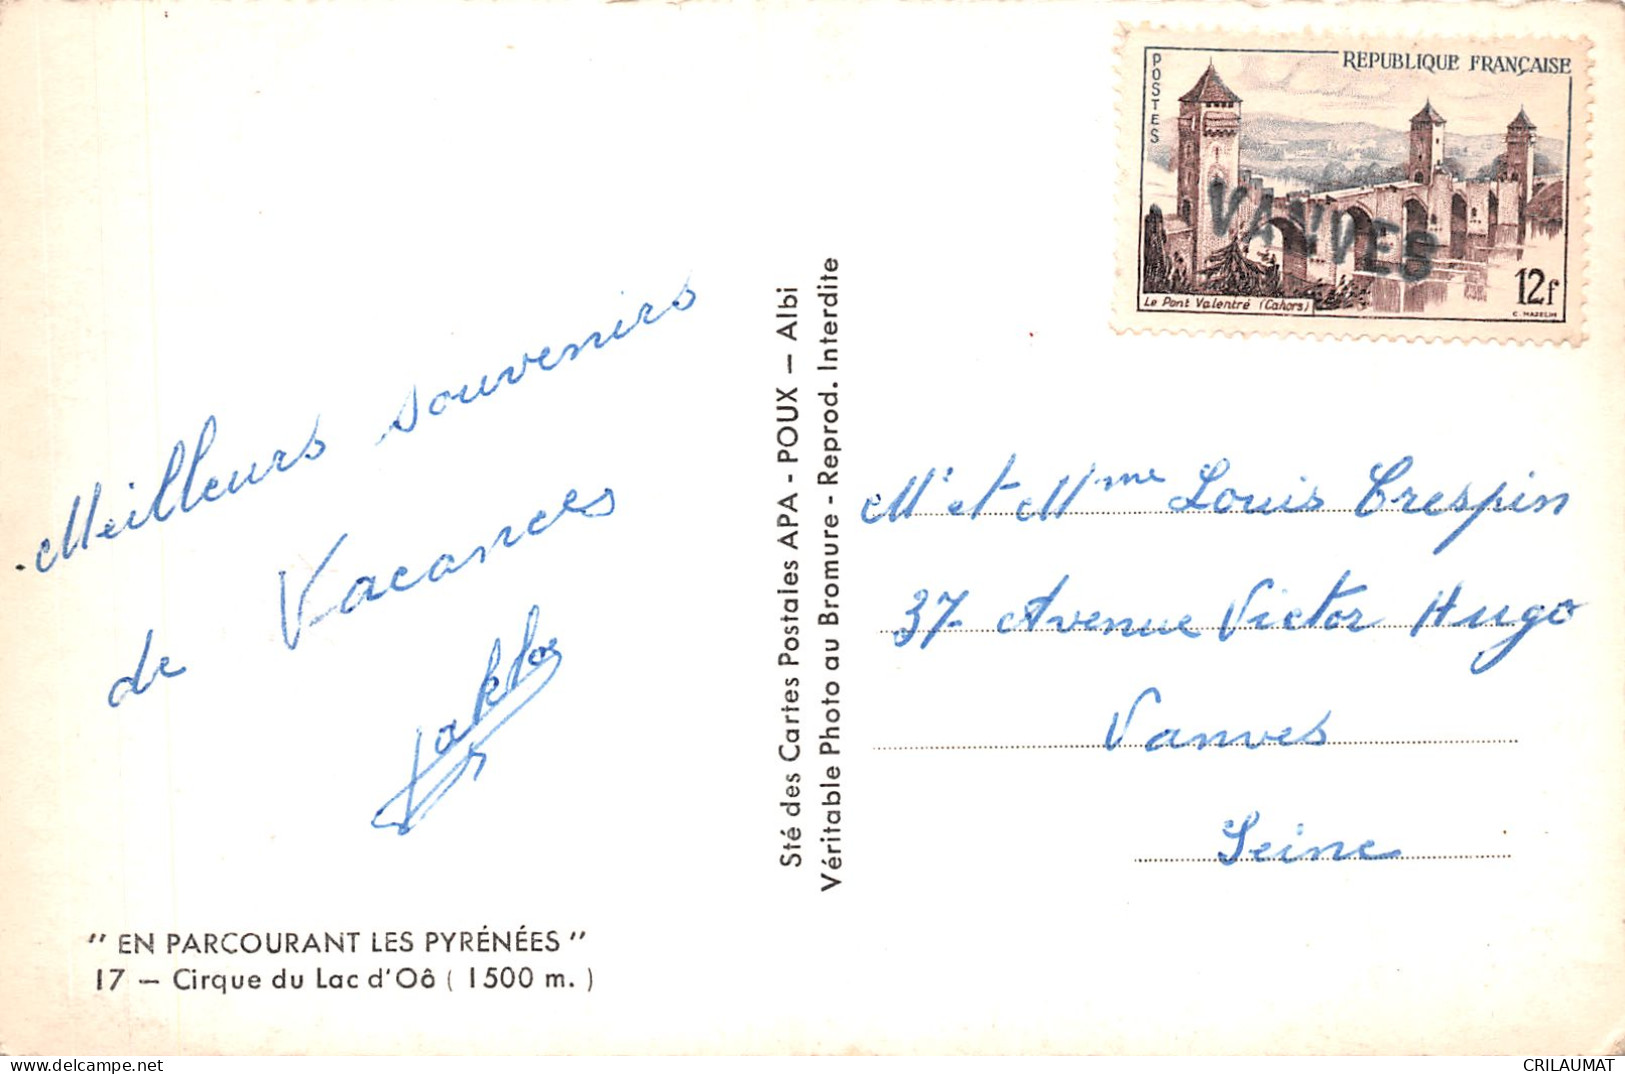 Meilleurs souvenirs
de Vacances
" EN PARCOURANT LES PYRÉNÉES "
17 — Cirque du Lac d'Oô ( 1500 m. )
Sté des Cartes Postales APA - POUX — Albi
Véritable Photo au Bromure - Reprod. Interdite
POSTES
RÉPUBLIQUE FRANÇAISE
VANVES
Le Pont Valentré (Cahors)
12f
C. MAZELIN
Mr et Mme Louis Crespin
37 Avenue Victor Hugo
Vanves
Seine
CRILAUMAT